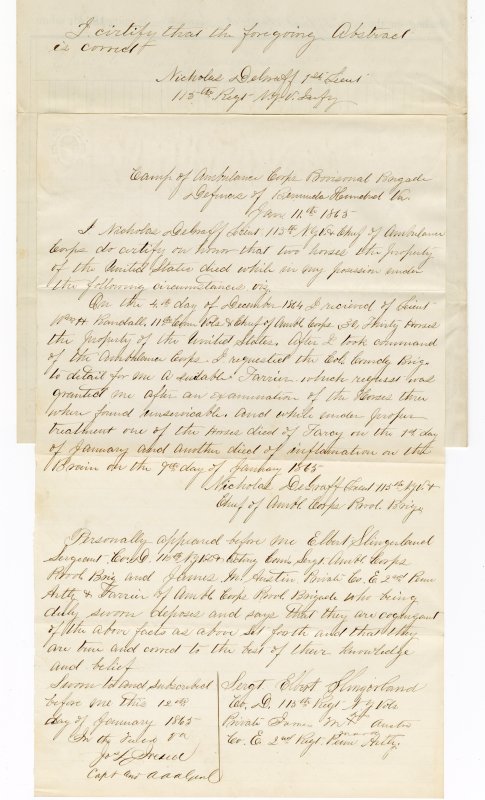 I cirtify that the foregoing Abstract
is correct
Nicholas DeGraff 1st Lieut
115th Regt N.Y. V. Infy
Camp of Ambulance Corps Provisonal Brigade
Defences of Bermuda Hundred Va.
Jan 11th 1865
I Nicholas DeGraff Lieut 115th N.Y.V. & Chief of Ambulance
Corps do certify on honor that two horses the property
of the United States died while in my possion under
the following circumstances viz,
On the 4th day of December 1864 I recieved of Lieut
Wm H Randall, 11th Conn Vols & Chief of Ambl Corps 30, Thirty Horses
the property of the United States. After I took command
of the Ambulance Corps I requested the Col Comdg Brig.
to detail for me a suitable Farrier which request was
granted me after an examination of the Horses three
where found unservicable. and while under proper
treatment one of the horses died of Farcy on the 1st day
of January and another died of inflamation on the
Brain on the 9th day of January 1865
Nicholas DeGraff Lieut 115th N.Y.V. &
Chief of Ambl Corps Provl. Brig.
Personally appeared before me Elbert Slingerland
Sergeant Co. D. 115th N.Y.V. & Acting Com. Sergt Ambl Corps
Provl Brig and James M. Austin Private Co. E 2nd Penn
Arty & Farrier of Ambl Corps Provl Brigade who being
duly sworn deposes and says that they are cognizant
of the above facts as above set forth and that they
are true and correct to the best of their knowledge
and belief
Sworn to and subscribed
before me this 12th
day of January 1865
In the Field Va
Capt and A A A Genl
Sergt Elbert Slingerland
Co, D. 115th Regt N Y Vols
Private James M Austin
Co. E. 2nd Regt Penn Arty.